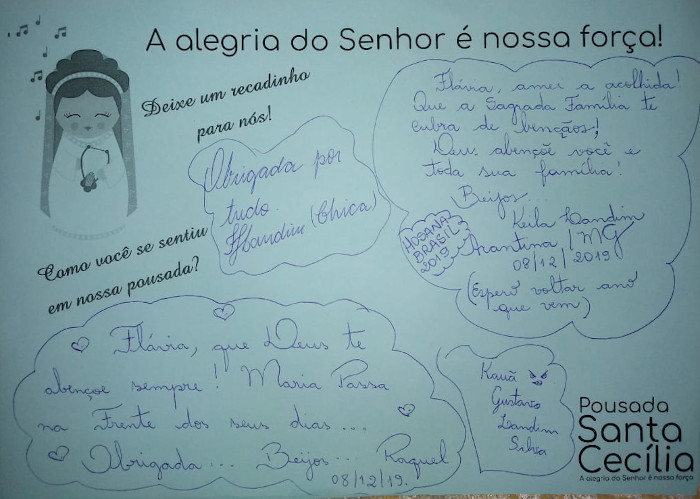 A alegria do Senhor é nossa força!
Deixe um recadinho
para nós!
Flávia, amei a acolhida!
Que a Sagrada Família te
cubra de bençãos!
Deus abençõe você e
toda sua família!
Beijos
Keila Landim
Arantina / MG
08/12/2019
(Espero voltar ano
que vem)
HOSANA
BRASIL
2019
Obrigada por
tudo.
(Chica)
Como você se sentiu
em nossa pousada?
Flávia, que Deus te
abençoe sempre! Maria Passa
na Frente dos seus dias...
Obrigada... Beijos... Raquel
08/12/19.
Kauã
Gustavo
Landim
Silva
Pousada
Santa
Cecília
A alegria do Senhor é nossa força